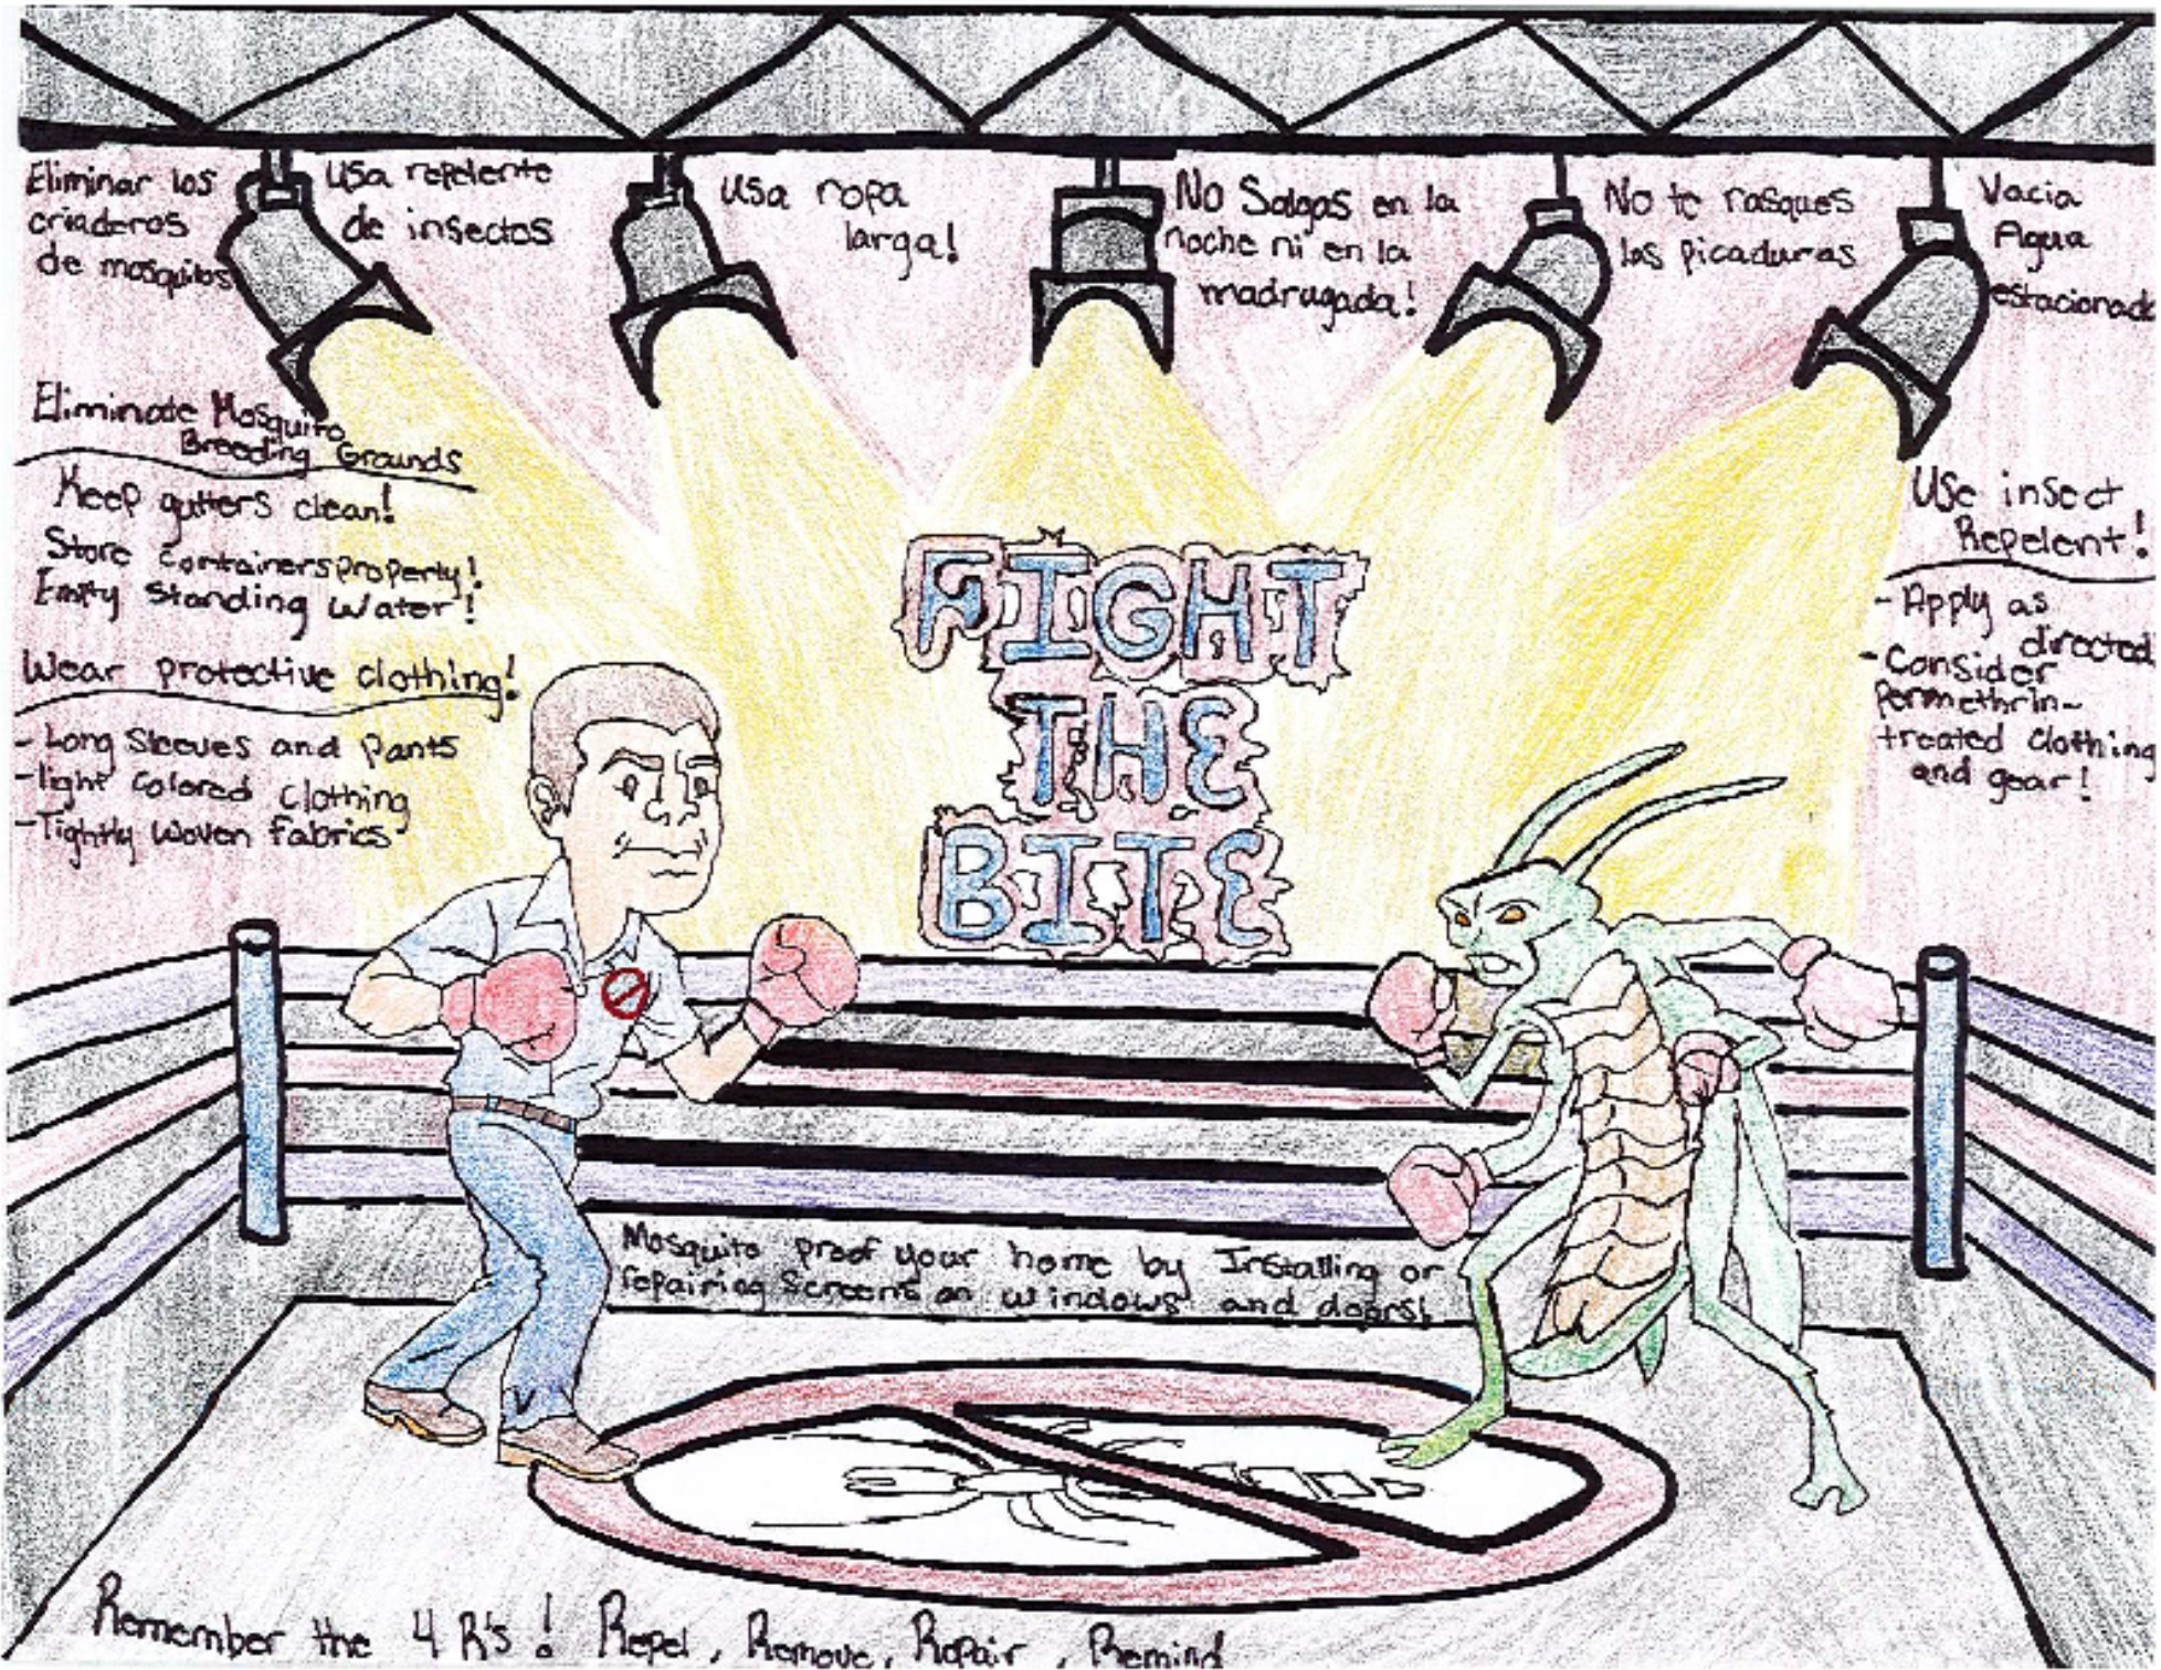 Eliminar los
criaderos
de mosquitos
Usa repelente
de insectos
Usa ropa
larga!
No Salgas en la
noche ni en la
madrugada!
No te rasques
las picaduras
Vacia
Agua
estacionada
Eliminate Mosquito
Breeding Grounds
Keep gutters clean!
Store containers properly!
Empty Standing Water!
Wear protective clothing!
- Long Sleeves and Pants
- light colored clothing
- Tightly Woven fabrics
FIGHT
THE
BITE
Use insect
Repelent!
- Apply as
directed
- Consider
Permethrin-
treated clothing
and gear!
Mosquito proof your home by Installing or
repairing Screens on windows and doors!
Remember the 4 R's! Repel, Remove, Repair, Remind